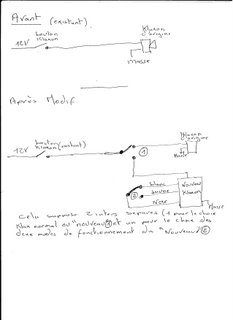 Avant (existant)
Klaxon
d'origine
bouton
Klaxon
12V
Masse
Après Modif
Klaxon
d'origine
bouton
Klaxon (existant)
12V
①
Masse
blanc
Nouveau
Klaxon
②
Noir
Masse
Cela suppose 2 inters séparés (1 pour le choix
Klax normal ou "nouveau" ① et un pour le choix des
deux modes de fonctionnement du "Nouveau" ②